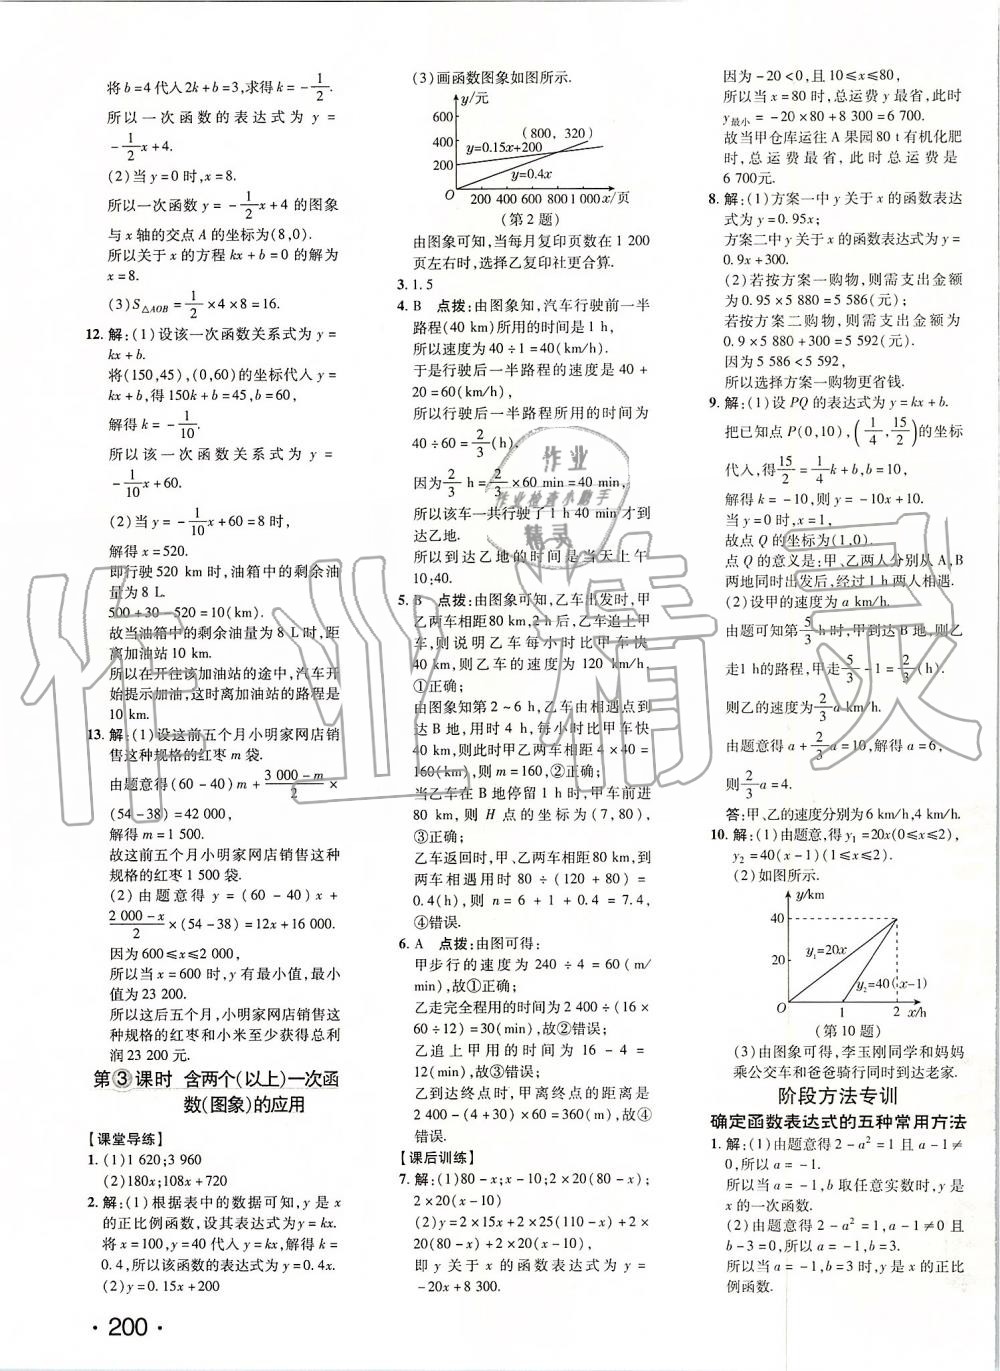 将b=4代入2k+b=3,求得k=-1/2.
所以一次函数的表达式为y=
-1/2x+4.
(2)当y=0时,x=8.
所以一次函数y=-1/2x+4的图象
与x轴的交点A的坐标为(8,0).
所以关于x的方程kx+b=0的解为
x=8.
(3)S△AOB=1/2×4×8=16.
12.解:(1)设该一次函数关系式为y=
kx+b.
将(150,45),(0,60)的坐标代入y=
kx+b,得150k+b=45,b=60,
解得k=-1/10.
所以该一次函数关系式为y=
-1/10x+60.
(2)当y=-1/10x+60=8时,
解得x=520.
即行驶520 km时,油箱中的剩余油
量为8 L.
500+30-520=10(km).
故当油箱中的剩余油量为8 L时,距
离加油站10 km.
所以在开往该加油站的途中,汽车开
始提示加油,这时离加油站的路程是
10 km.
13.解:(1)设这前五个月小明家网店销
售这种规格的红枣m袋.
由题意得(60-40)m+3 000-m/2×
(54-38)=42 000,
解得m=1 500.
故这前五个月小明家网店销售这种
规格的红枣1 500袋.
(2)由题意得y=(60-40)x+
2 000-x/2×(54-38)=12x+16 000.
因为600≤x≤2 000,
所以当x=600时,y有最小值,最小
值为23 200.
所以这后五个月,小明家网店销售这
种规格的红枣和小米至少获得总利
润23 200元.
第③课时 含两个(以上)一次函
数(图象)的应用
【课堂导练】
1.(1)1 620;3 960
(2)180x;108x+720
2.解:(1)根据表中的数据可知,y是x
的正比例函数,设其表达式为y=kx.
将x=100,y=40代入y=kx,解得k=
0.4,所以该函数的表达式为y=0.4x.
(2)y=0.15x+200
·200·
(3)画函数图象如图所示.
y/元
600
400
200
(800,320)
y=0.15x+200
y=0.4x
O 200 400 600 800 1 000 x/页
(第2题)
由图象可知,当每月复印页数在1 200
页左右时,选择乙复印社更合算.
3.1.5
4.B 点拨:由图象知,汽车行驶前一半
路程(40 km)所用的时间是1 h,
所以速度为40÷1=40(km/h).
于是行驶后一半路程的速度是40+
20=60(km/h).
所以行驶后一半路程所用的时间为
40÷60=2/3(h).
因为2/3 h=2/3×60 min=40 min,
所以该车一共行驶了1 h 40 min才到
达乙地.
所以到达乙地的时间是当天上午
10:40.
5.B 点拨:由图象可知,乙车出发时,甲
乙两车相距80 km,2 h后,乙车追上甲
车,则说明乙车每小时比甲车快
40 km,则乙车的速度为120 km/h,
①正确;
由图象知第2~6 h,乙车由相遇点到
达B地,用时4 h,每小时比甲车快
40 km,则此时甲乙两车距离4×40=
160(km),则m=160,②正确;
当乙车在B地停留1 h时,甲车前进
80 km,则H点的坐标为(7,80),
③正确;
乙车返回时,甲、乙两车相距80 km,到
两车相遇用时80÷(120+80)=
0.4(h),则n=6+1+0.4=7.4,
④错误.
6.A 点拨:由图可得:
甲步行的速度为240÷4=60(m/
min),故①正确;
乙走完全程用的时间为2 400÷(16×
60÷12)=30(min),故②错误;
乙追上甲用的时间为16-4=
12(min),故③错误;
乙到达终点时,甲离终点的距离是
2 400-(4+30)×60=360(m),故④
错误.
【课后训练】
7.解:(1)80-x;x-10;2×20(80-x);
2×20(x-10)
(2)y=2×15x+2×25(110-x)+2×
20(80-x)+2×20(x-10),
即y关于x的函数表达式为y=
-20x+8 300.
因为-20<0,且10≤x≤80,
所以当x=80时,总运费y最省,此时
y最小=-20×80+8 300=6 700.
故当甲仓库运往A果园80 t有机化肥
时,总运费最省,此时总运费是
6 700元.
8.解:(1)方案一中y关于x的函数表达
式为y=0.95x;
方案二中y关于x的函数表达式为y=
0.9x+300.
(2)若按方案一购物,则需支出金额
为0.95×5 880=5 586(元);
若按方案二购物,则需支出金额为
0.9×5 880+300=5 592(元).
因为5 586<5 592,
所以选择方案一购物更省钱.
9.解:(1)设PQ的表达式为y=kx+b.
把已知点P(0,10),(1/4,15/2)的坐标
代入,得15/2=1/4k+b,b=10,
解得k=-10,则y=-10x+10.
当y=0时,x=1,
故点Q的坐标为(1,0).
点Q的意义是:甲、乙两人分别从A、B
两地同时出发后,经过1 h两人相遇.
(2)设甲的速度为a km/h.
由题可知第5/3 h时,甲到达B地,则乙
走1 h的路程,甲走5/3-1=2/3(h).
则乙的速度为2/3a km/h.
由题意得a+2/3a=10,解得a=6,
则2/3a=4.
答:甲、乙的速度分别为6 km/h,4 km/h.
10.解:(1)由题意,得y₁=20x(0≤x≤2),
y₂=40(x-1)(1≤x≤2).
(2)如图所示.
y/km
40
20
y₁=20x
y₂=40(x-1)
O 1 2 x/h
(第10题)
(3)由图象可得,李玉刚同学和妈妈
乘公交车和爸爸骑行同时到达老家.
阶段方法专训
确定函数表达式的五种常用方法
1.解:(1)由题意得2-a²=1且a-1≠
0,所以a=-1.
所以当a=-1,b取任意实数时,y是
x的一次函数.
(2)由题意得2-a²=1,a-1≠0且
b-3=0,所以a=-1,b=3.
所以当a=-1,b=3时,y是x的正比
例函数.
作业
作业检查小助手
精灵
作业精灵